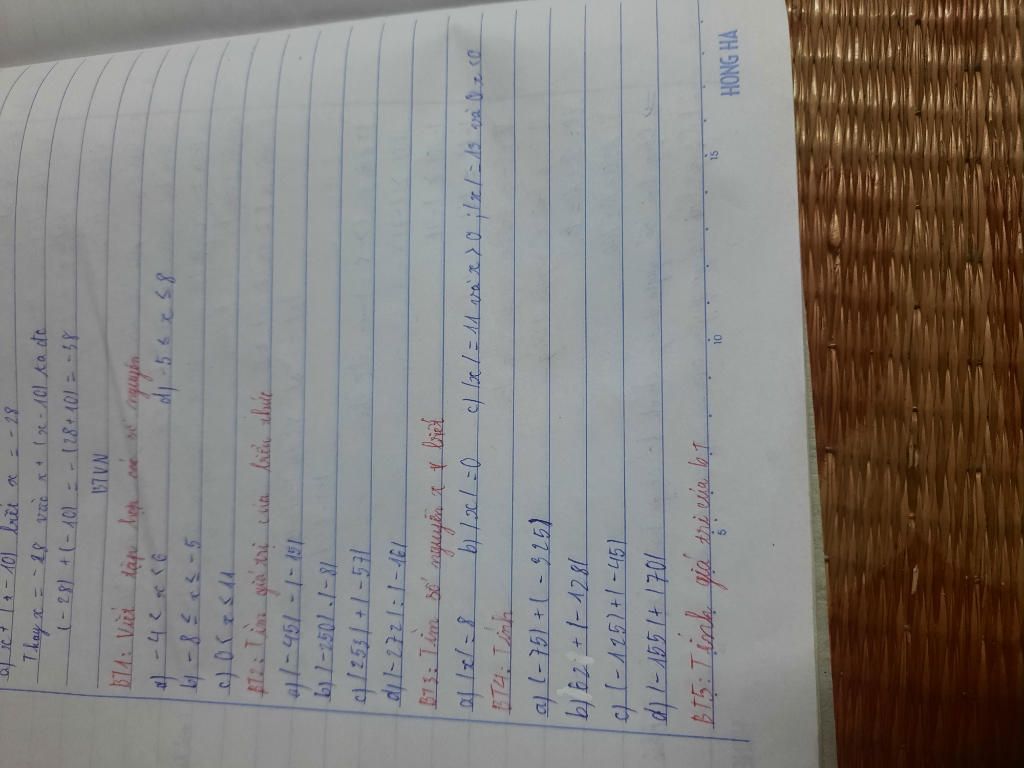 a) x + (-10) biết x = -28
Thay x = -28 vào x + (x-10) ta đc
(-28) + (-10) = -(28+10) = -38
BTVN
BT1: Viết tập hợp các số nguyên
a) -4 < x < 6 d) -5 ≤ x ≤ 8
b) -8 ≤ x ≤ -5
c) 0 < x ≤ 11
BT2: Tìm giá trị của biểu thức
a) |-45| - |-15|
b) |-250|.|-8|
c) |253| + |-57|
d) |-272| : |-16|
BT3: Tìm số nguyên x biết
a) |x| = 8 b) |x| = 0 c) |x| = 11 và x > 0 ; |x| = 13 và x < 0
BT4: Tính
a) (-75) + (-325)
b) 62 + |-128|
c) (-125) + |-45|
d) |-155| + |70|
BT5: Tính giá trị của bt
5 10 15
HONG HA